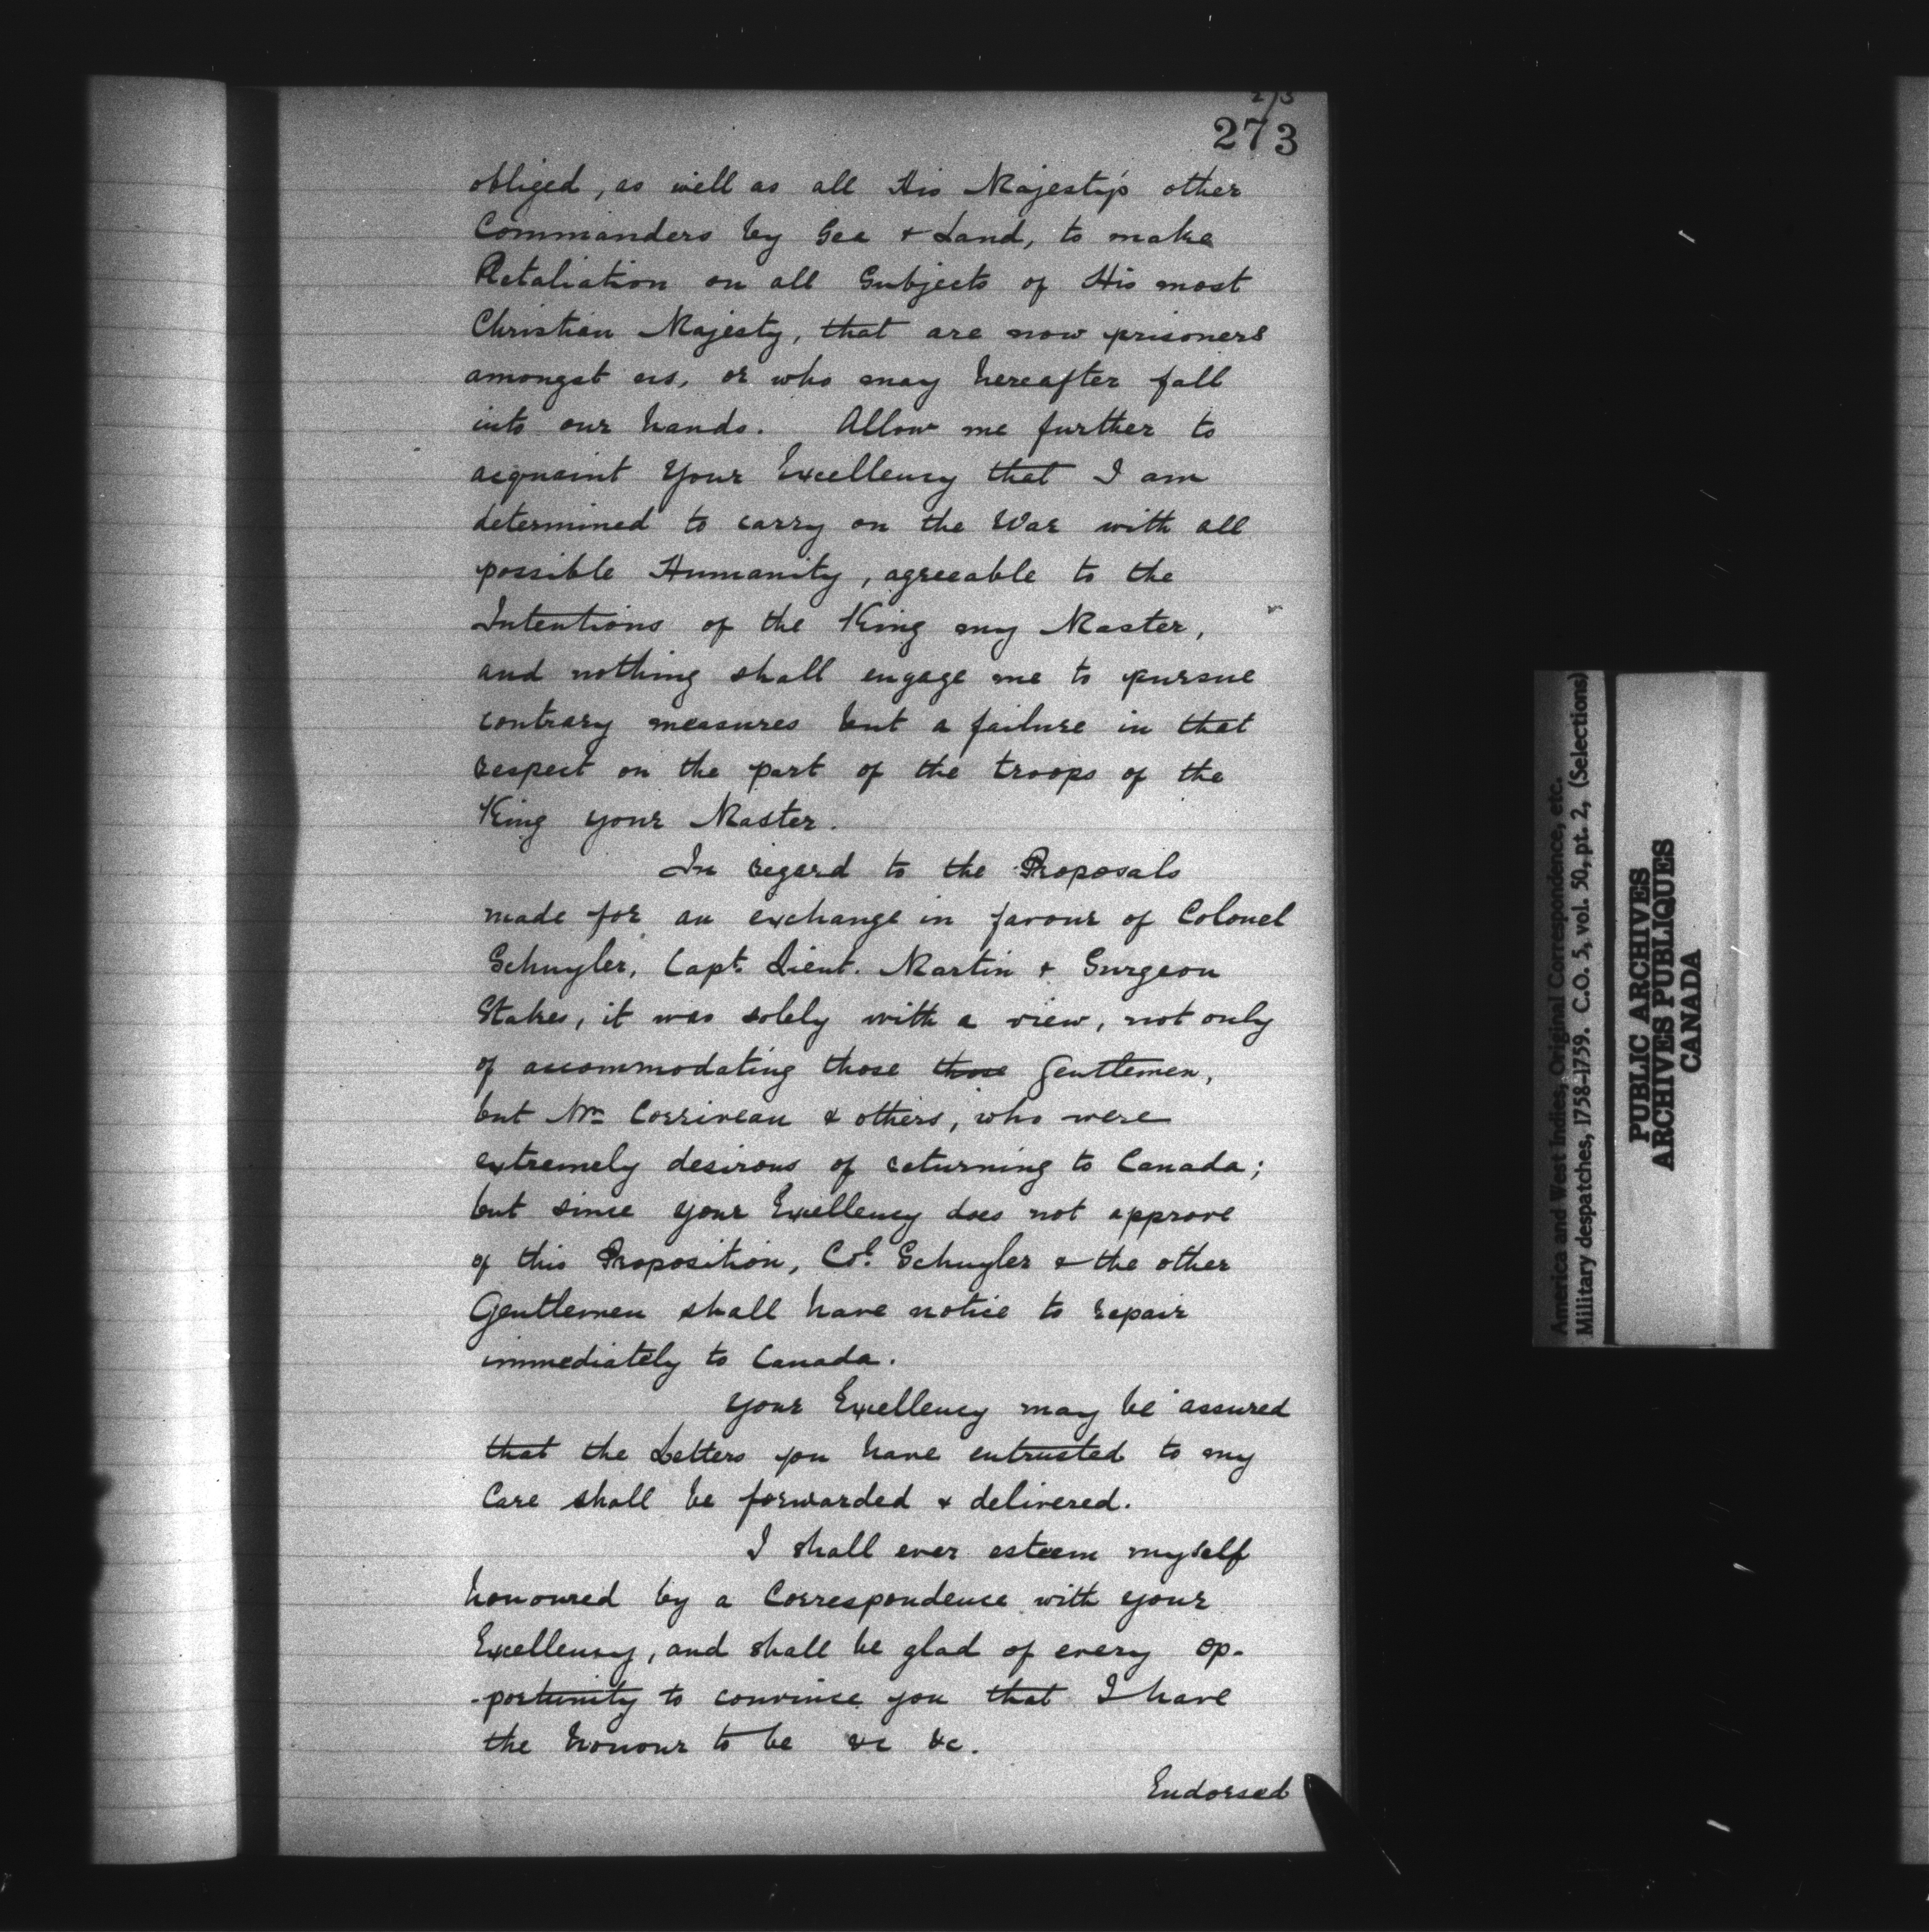 273
273
obliged, as well as all His Majesty's other
Commanders by Sea & Land, to make
Retaliation on all Subjects of His most
Christian Majesty, that are now prisoners
amongst us, or who may hereafter fall
into our hands. Allow me further to
acquaint Your Excellency that I am
determined to carry on the War with all
possible Humanity, agreeable to the
Intentions of the King my Master,
and nothing shall engage me to pursue
contrary measures but a failure in that
respect on the part of the troops of the
King your Master.
In regard to the Proposals
made for an exchange in favour of Colonel
Schuyler, Capt. Lieut. Martin & Surgeon
Stakes, it was solely with a view, not only
of accommodating those those Gentlemen,
but Mr. Corriveau & others, who were
extremely desirous of returning to Canada;
but since your Excellency does not approve
of this Proposition, Col. Schuyler & the other
Gentlemen shall have notice to repair
immediately to Canada.
Your Excellency may be assured
that the Letters you have entrusted to my
Care shall be forwarded & delivered.
I shall ever esteem myself
honoured by a Correspondence with your
Excellency, and shall be glad of every op-
-portunity to convince you that I have
the honour to be &c &c.
Endorsed
America and West Indies, Original Correspondence, etc.
Military despatches, 1758-1759. C.O. 5, vol. 50, pt. 2, (Selections)
PUBLIC ARCHIVES
ARCHIVES PUBLIQUES
CANADA